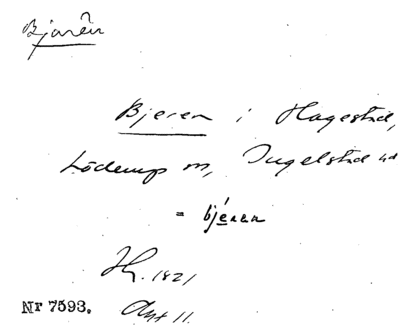 Bjarên
Bjeren i Hagestad,
Löderup sn, Ingelstad hd
= bjéren
Hz. 1821
Nr 7593. Avt 11.